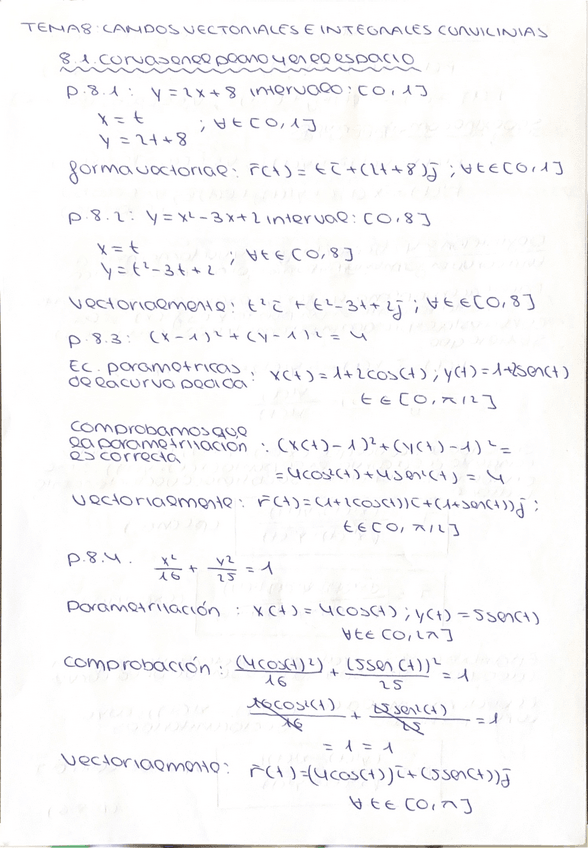 TEMA8: CAMPOS VECTORIALES E INTEGRALES CURVILINIAS
8.1. Curvas en el plano y en el espacio
P.8.1: y = 2x+8 intervalo: [0,1]
x = t
y = 2t+8 ; ∀t∈[0,1]
forma vectorial: r̄(t) = t ī + (2t+8) j̄ ; ∀t∈[0,1]
P.8.2: y = x²-3x+2 interval: [0,8]
x = t
y = t²-3t+2 ; ∀t∈[0,8]
Vectorialmente: t² ī + t²-3t+2 j̄ ; ∀t∈[0,8]
P.8.3: (x-1)² + (y-1)² = 4
Ec. parametricas
de la curva pedida : x(t) = 1+2cos(t) ; y(t) = 1+2sen(t)
t∈[0, π/2]
Comprobamos que
la parametrización : (x(t)-1)² + (y(t)-1)² =
es correcta
= 4cos²(t) + 4sen²(t) = 4
Vectorialmente: r̄(t) = (1+2(cos(t)) ī + (1+sen(t)) j̄ ;
t∈[0, π/2]
P.8.4. x²/16 + y²/25 = 1
Parametrización : x(t) = 4cos(t) ; y(t) = 5sen(t)
∀t∈[0,2π]
Comprobación : (4cos(t)²)/16 + (5sen(t))²/25 = 1
16cos²(t)/16 + 25sen²(t)/25 = 1
= 1 = 1
Vectorialmente: r̄(t) = (4cos(t)) ī + (5sen(t)) j̄
∀t∈[0,π]